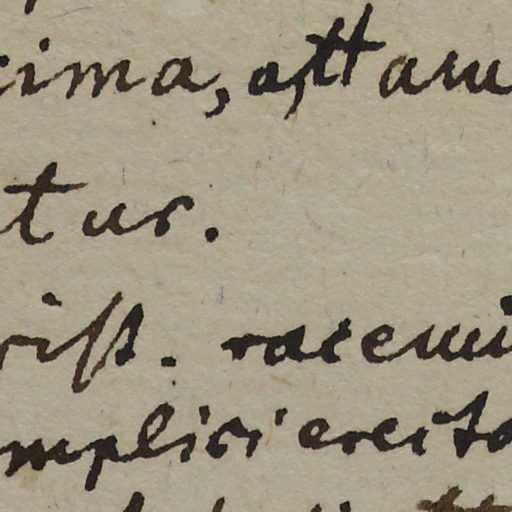 cima, attam
tur.
rist. racemi
mplici erecto